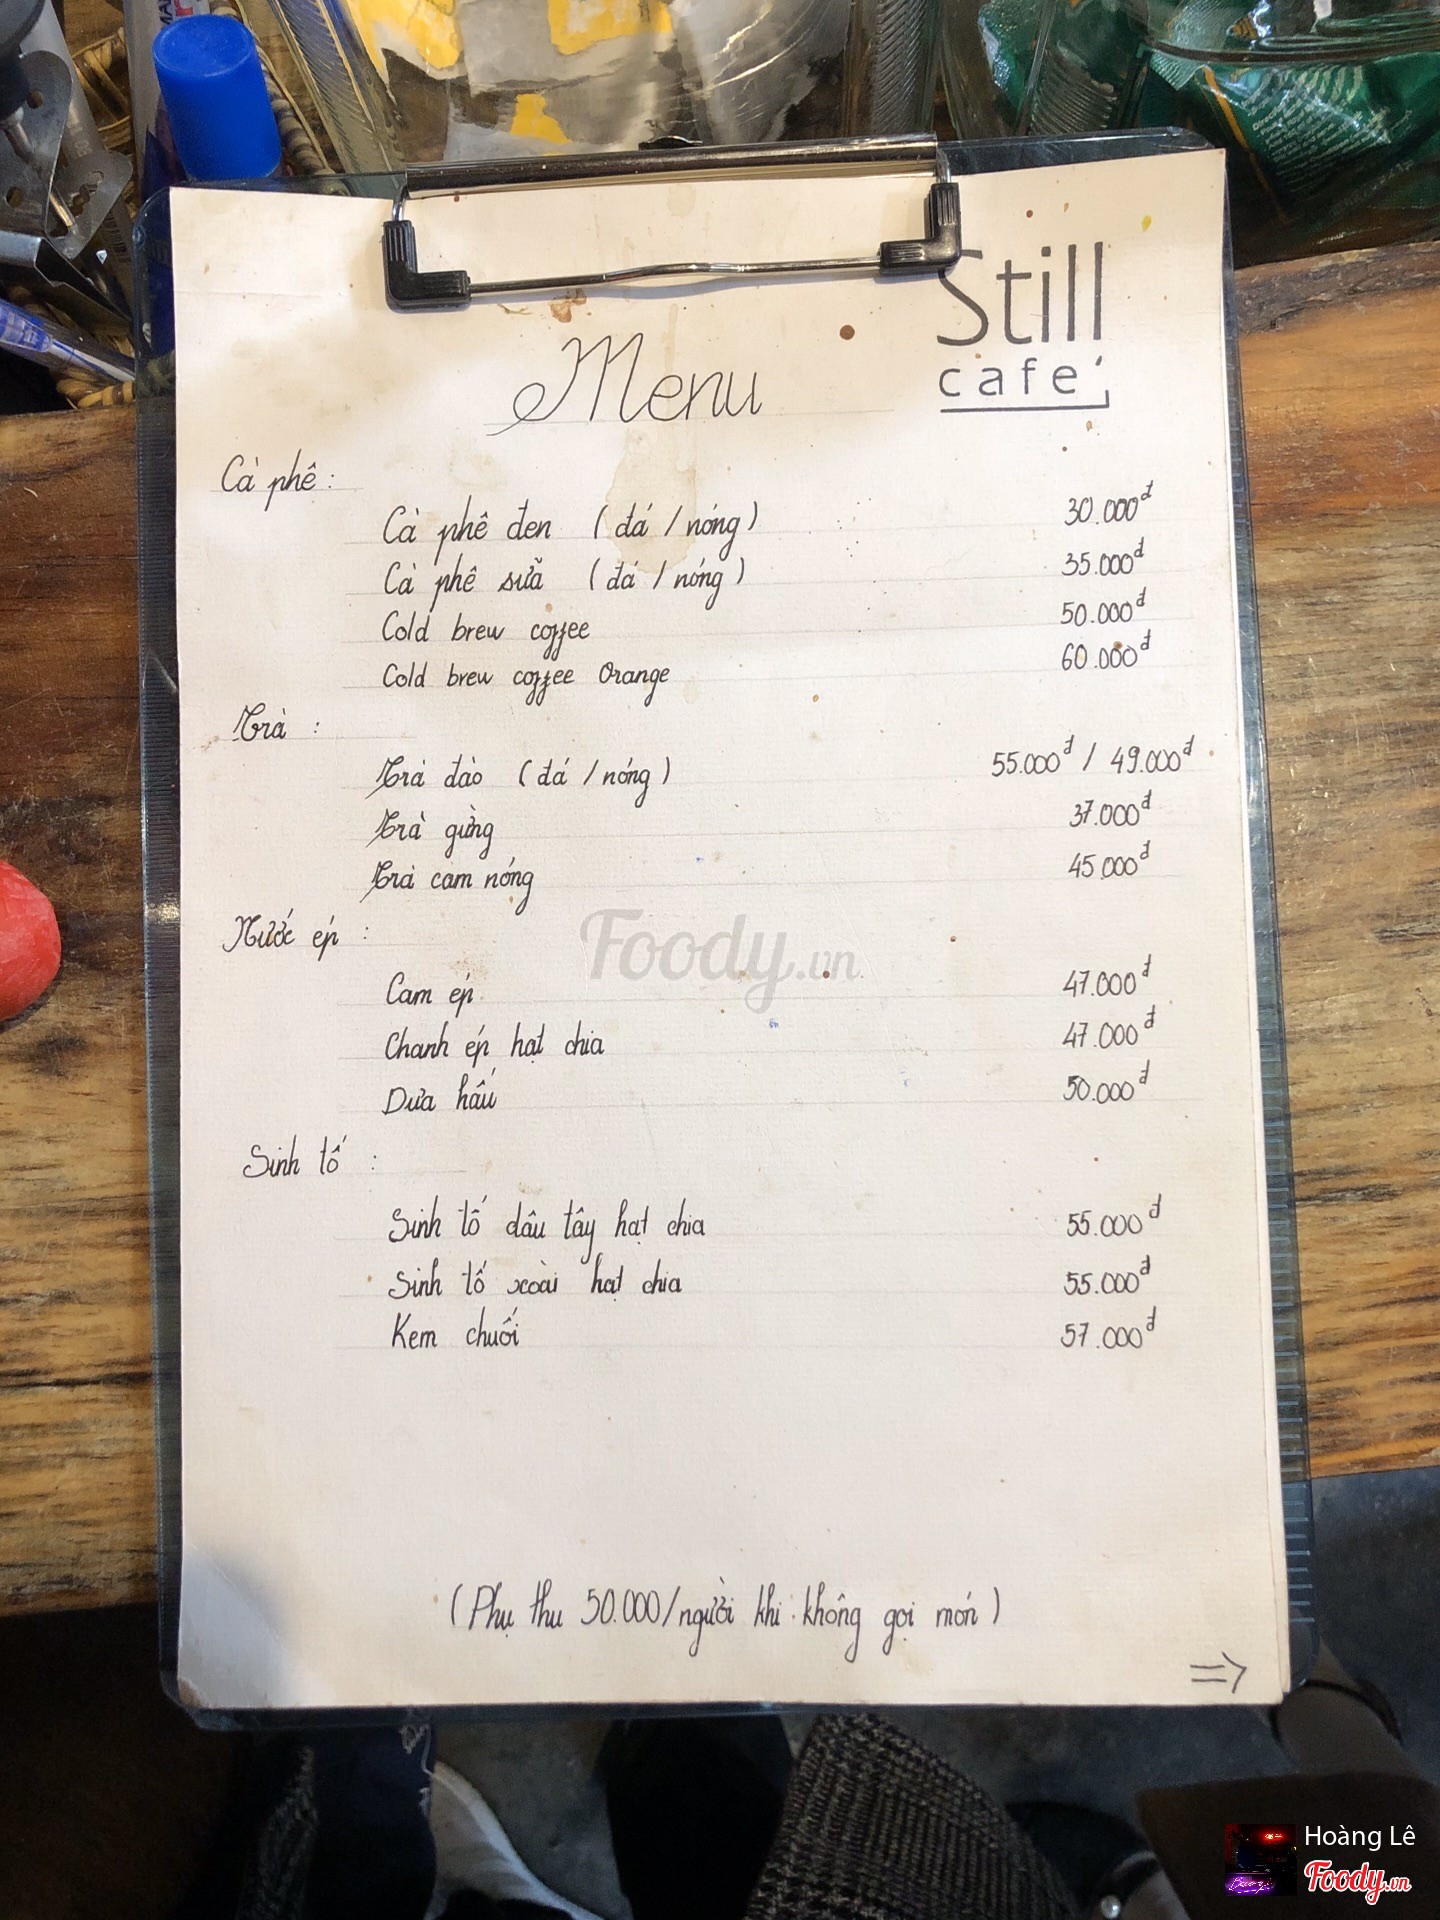 Still
café
Menu
Cà phê :
Cà phê đen ( đá / nóng ) 30.000đ
Cà phê sữa ( đá / nóng ) 35.000đ
Cold brew coffee 50.000đ
Cold brew coffee Orange 60.000đ
Trà :
Trà đào ( đá / nóng ) 55.000đ / 49.000đ
Trà gừng 37.000đ
Trà cam nóng 45.000đ
Nước ép :
Foody.vn
Cam ép 47.000đ
Chanh ép hạt chia 47.000đ
Dưa hấu 50.000đ
Sinh tố :
Sinh tố dâu tây hạt chia 55.000đ
Sinh tố xoài hạt chia 55.000đ
Kem chuối 57.000đ
( Phụ thu 50.000/người khi không gọi món )
=>
Hoàng Lê
Foody.vn